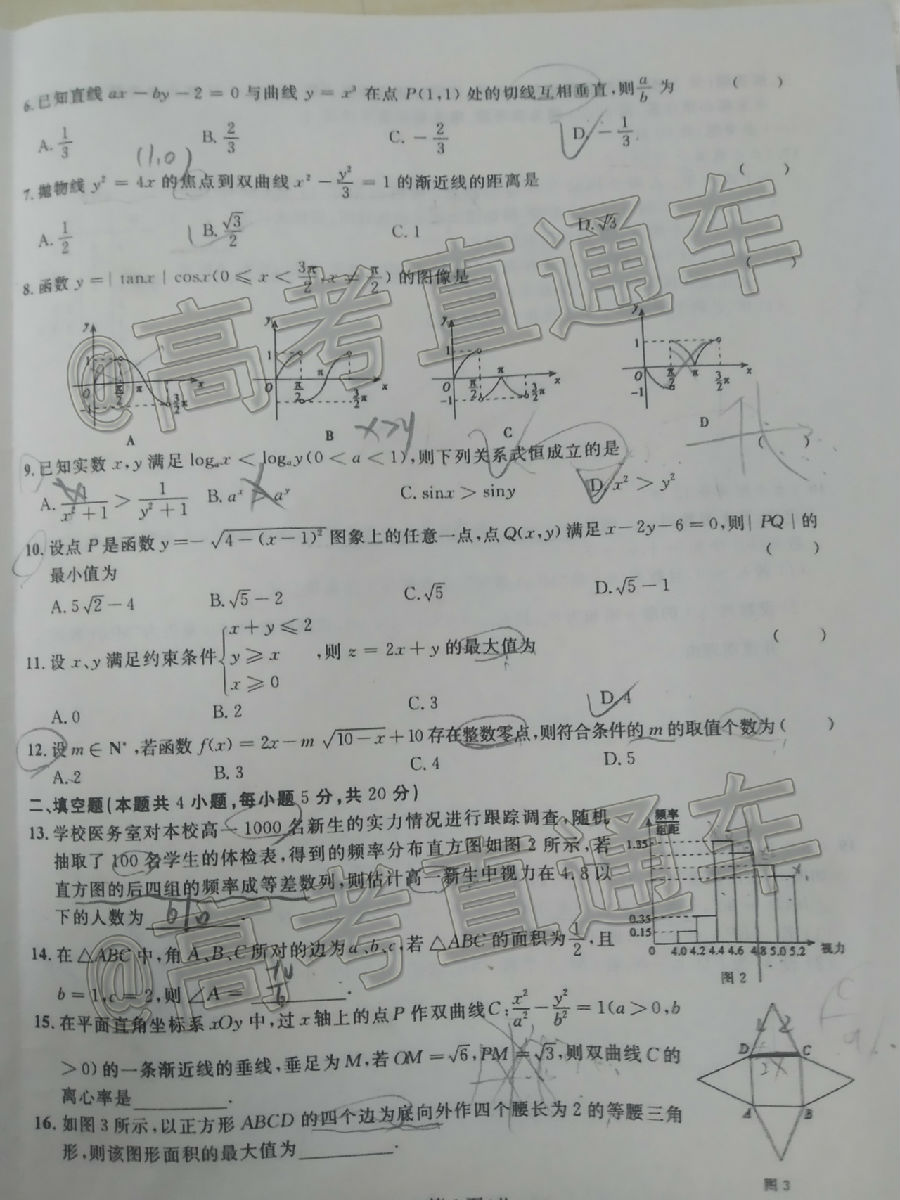 6.已知直线 ax－by－2＝0 与曲线 y＝x³ 在点 P(1,1) 处的切线互相垂直,则 a/b 为 (　)
A. 1/3　B. 2/3　C. －2/3　D. －1/3
(1,0)
7.抛物线 y²＝4x 的焦点到双曲线 x²－y²/3＝1 的渐近线的距离是 (　)
A. 1/2　B. √3/2　C. 1　D. √3
8.函数 y＝|tanx|cosx(0≤x＜3π/2,x≠π/2) 的图像是 (　)
A　B　C　D
x>y
9.已知实数 x,y 满足 logₐx＜logₐy(0＜a＜1),则下列关系式恒成立的是 (　)
A. 1/(x²+1)＞1/(y²+1)　B. aˣ＞aʸ　C. sinx＞siny　D. x²＞y²
10.设点 P 是函数 y＝－√(4－(x－1)²) 图象上的任意一点,点 Q(x,y) 满足 x－2y－6＝0,则|PQ|的
最小值为 (　)
A. 5√2－4　B. √5－2　C. √5　D. √5－1
11.设 x、y 满足约束条件{x＋y≤2　y≥x　x≥0,则 z＝2x＋y 的最大值为 (　)
A. 0　B. 2　C. 3　D. 4
12.设 m∈N*,若函数 f(x)＝2x－m√(10－x)＋10 存在整数零点,则符合条件的 m 的取值个数为(　)
A. 2　B. 3　C. 4　D. 5
二、填空题(本题共 4 小题,每小题 5 分,共 20 分)
13.学校医务室对本校高一 1000 名新生的实力情况进行跟踪调查,随机
抽取了 100 名学生的体检表,得到的频率分布直方图如图 2 所示,若
直方图的后四组的频率成等差数列,则估计高一新生中视力在 4.8 以
下的人数为
频率/组距
1.35
0.35
0.15
0　4.0 4.2 4.4 4.6 4.8 5.0 5.2　视力
图 2
14.在△ABC 中,角 A、B、C 所对的边为 a、b、c,若△ABC 的面积为 1/2,且
b＝1,c＝2,则∠A＝
15.在平面直角坐标系 xOy 中,过 x 轴上的点 P 作双曲线 C:x²/a²－y²/b²＝1(a＞0,b
＞0)的一条渐近线的垂线,垂足为 M,若 OM＝√6,PM＝√3,则双曲线 C 的
离心率是________.
16.如图 3 所示,以正方形 ABCD 的四个边为底向外作四个腰长为 2 的等腰三角
形,则该图形面积的最大值为________.
D　C
A　B
图 3
@高考直通车
@高考直通车